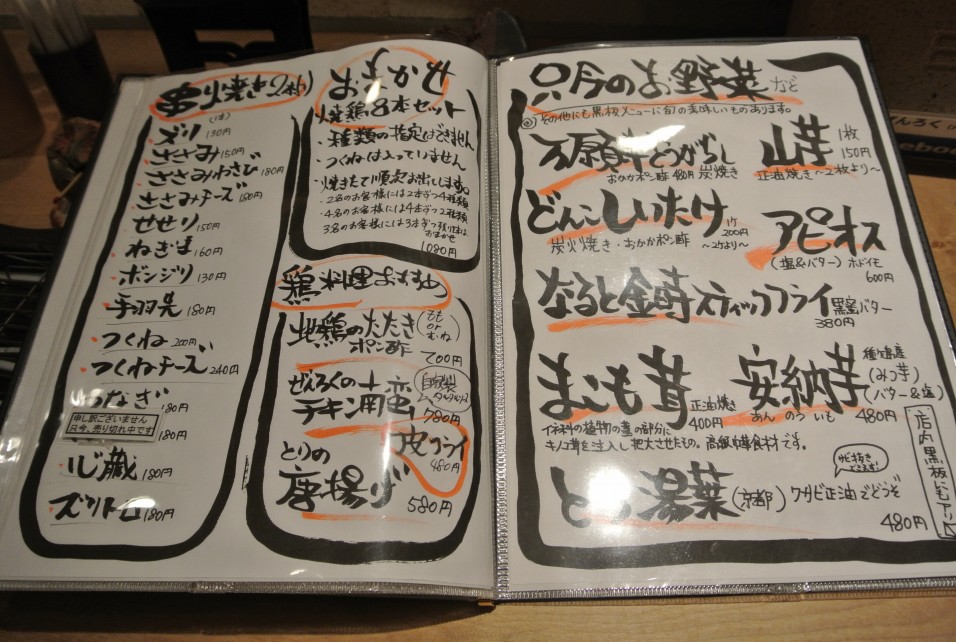 串焼き(2本)
(1本)
ズリ 130円
ささみ 150円
ささみわさび 180円
ささみチーズ 180円
せせり 150円
ねぎま 160円
ボンジリ 130円
手羽先 180円
つくね 200円
つくねチーズ 240円
つなぎ 180円
申し訳ございません
只今、売り切れ中です
180円
心臓 180円
ズリトロ 180円
おまかせ
焼鶏8本セット
・種類の指定はできません
・つくねは入っていません
・焼きたて順にお出しします。
・2名のお客様には2本ずつ4種類
・4名のお客様には4本ずつ2種類
3名のお客様には3本ずつ残り2本はおまかせ
1080円
鶏料理おすすめ
地鶏のたたき (もも or むね)
ポン酢 700円
ぜんろくの
チキン南蛮 自家製タルタルソース
780円
とりの
唐揚げ 580円
皮フライ
480円
只今のお野菜など
◎その他にも黒板メニューに旬の美味しいものあります。
万願寺とうがらし
おかかポン酢 480円 炭焼き
山芋 1枚 150円
正油焼き 〜2枚より〜
どんこしいたけ 1ケ 200円
炭火焼き・おかかポン酢 〜2ケより〜
アピオス
(塩&バター) ホドイモ
600円
なると金時スティックフライ 黒蜜バター
380円
まこも茸 正油焼き
400円
イネ科の植物の茎の部分に
キノコ菌を注入し肥大させたもの。高級中華食材です。
安納芋 種子島産 (みつ芋)
あんのういも (バター&塩)
480円
とう湯葉 (京都) ワサビ正油でどうぞ
サビ抜きできます!
480円
店内黒板にもアリ